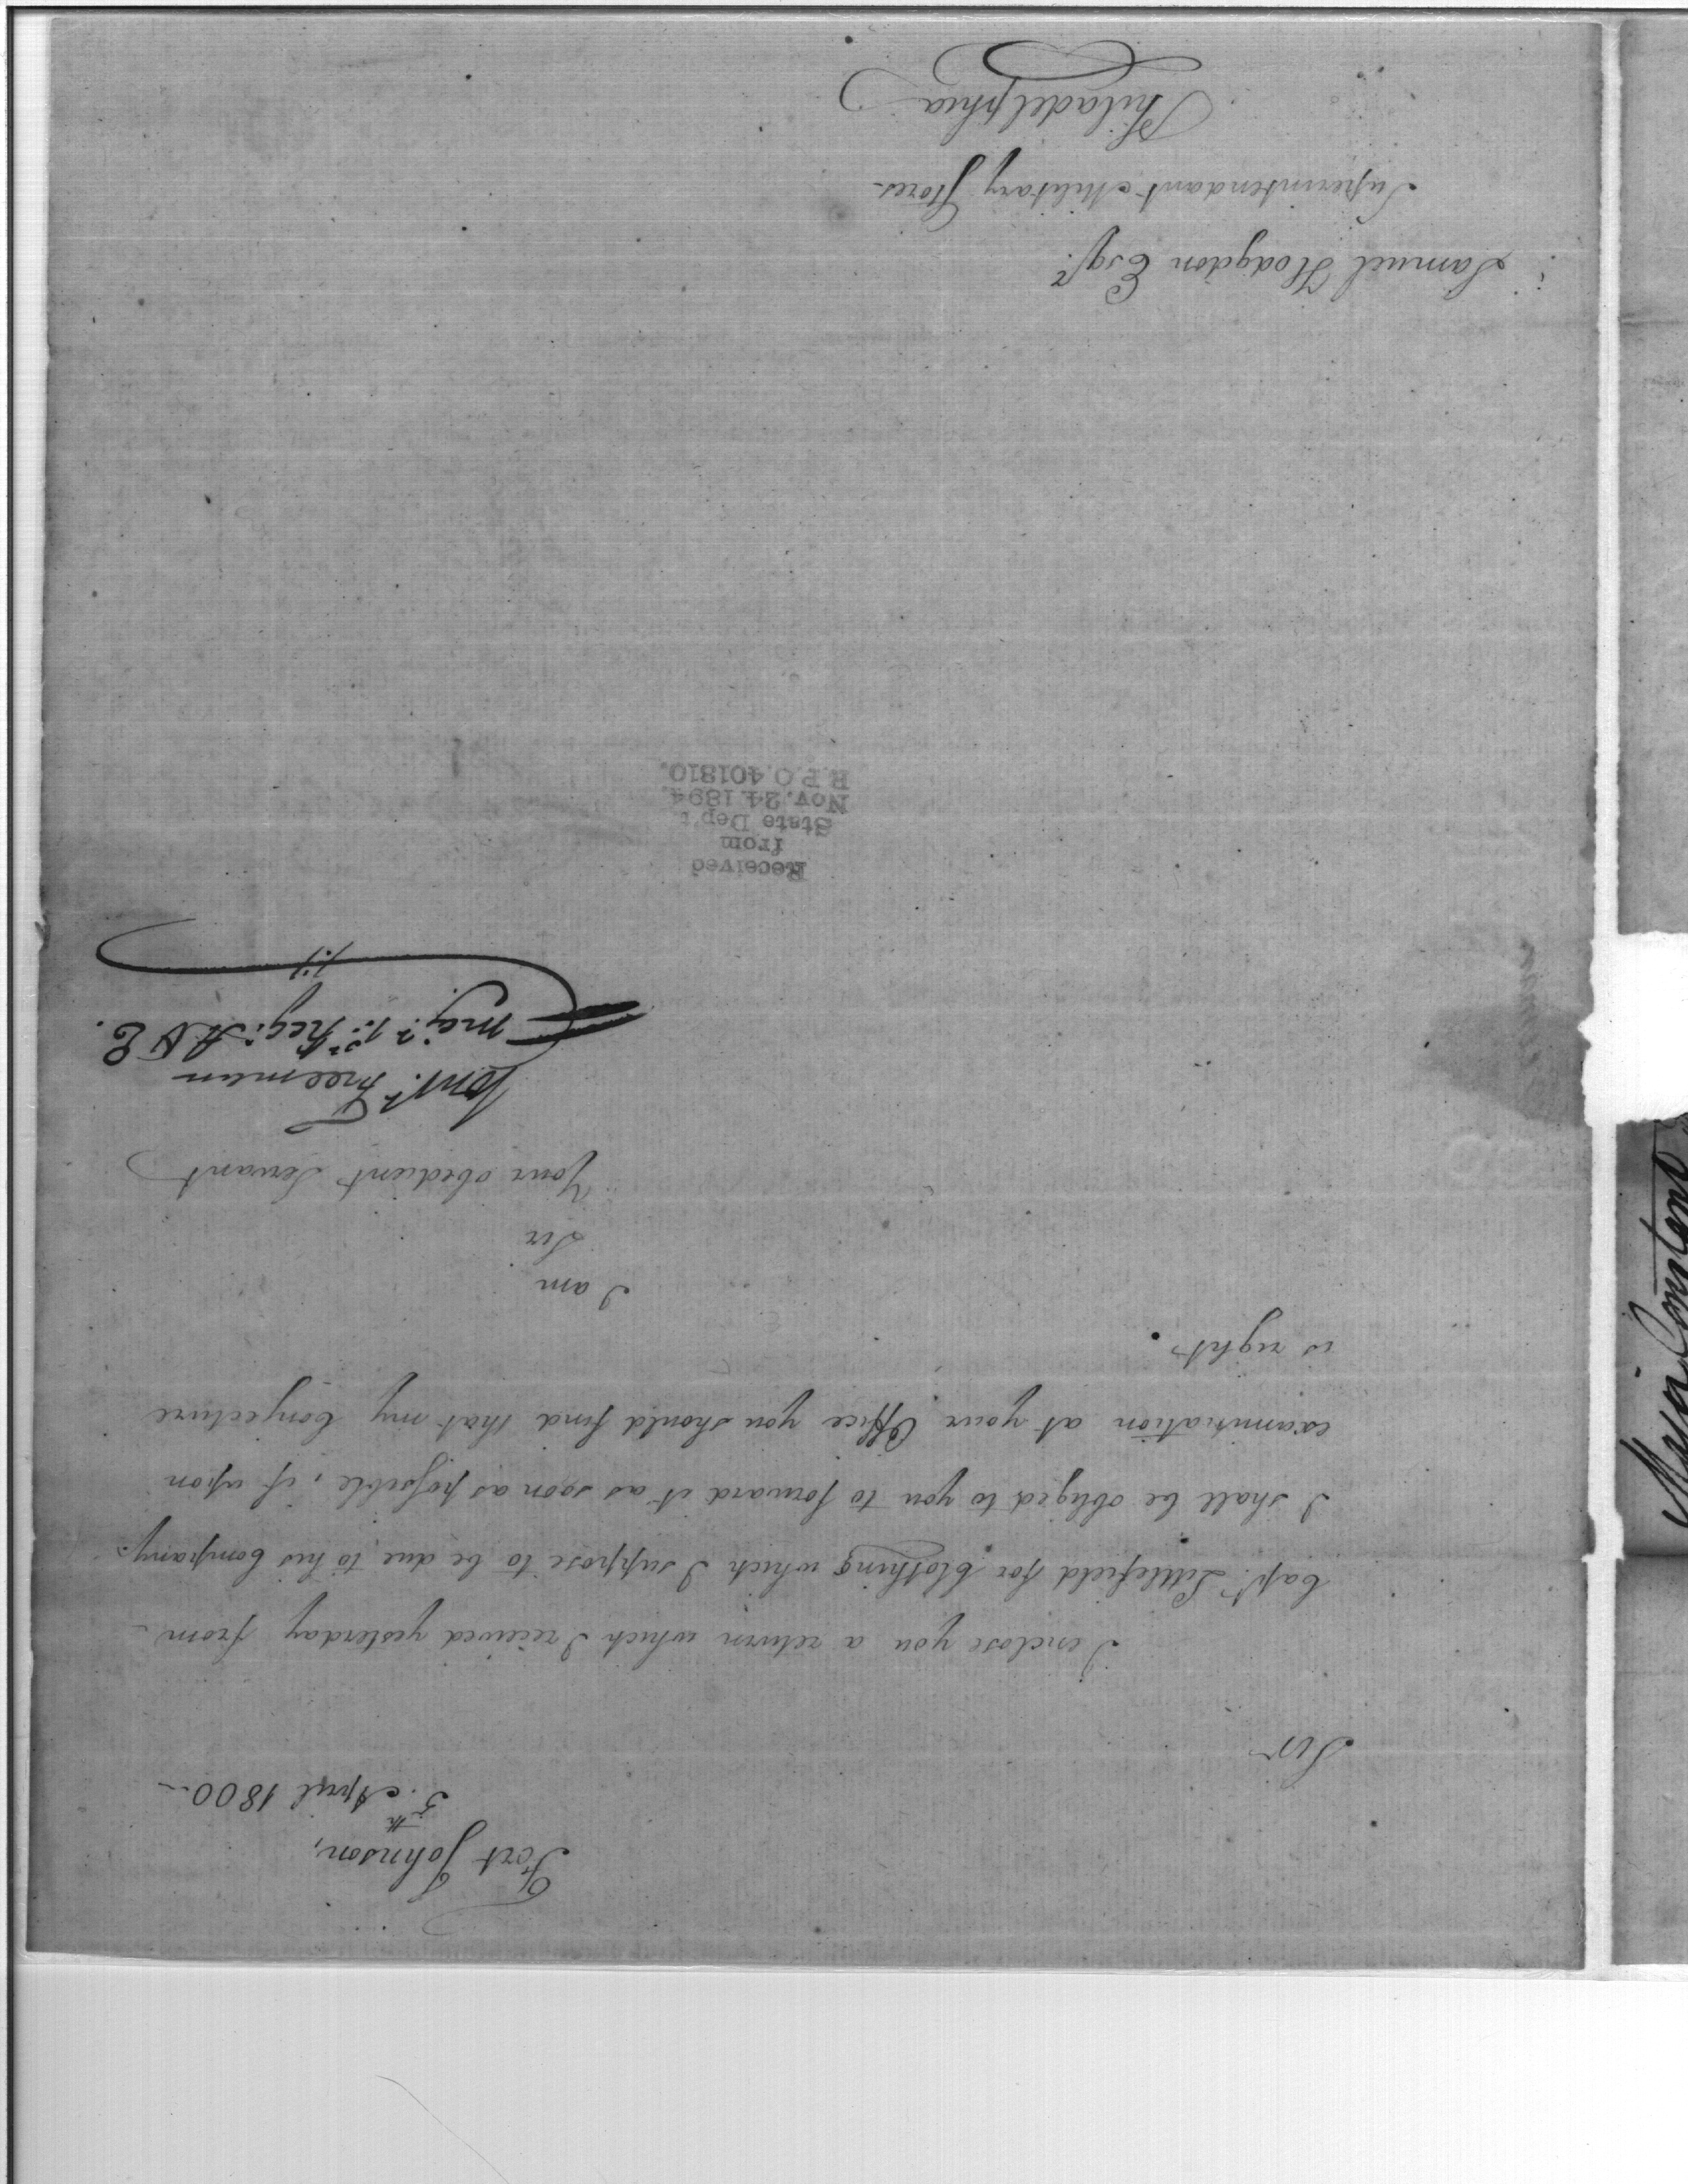 Fort Johnson,
5th April 1800
Sir
I enclose you a return which I received yesterday from
Capt. Littlefield for Clothing which I suppose to be due to his Company.
I shall be obliged to you to forward it as soon as possible, if upon
examination at your Office you should find that my Conjecture
is right.
I am
Sir
Your obedient Servant
Const. Freeman
Maj. 1st Reg: A & E.
Received
from
State Dep't
Nov. 24. 1894.
R.P.O. 401810.
Samuel Hodgdon Esqr.
Superintendant Military Stores
Philadelphia